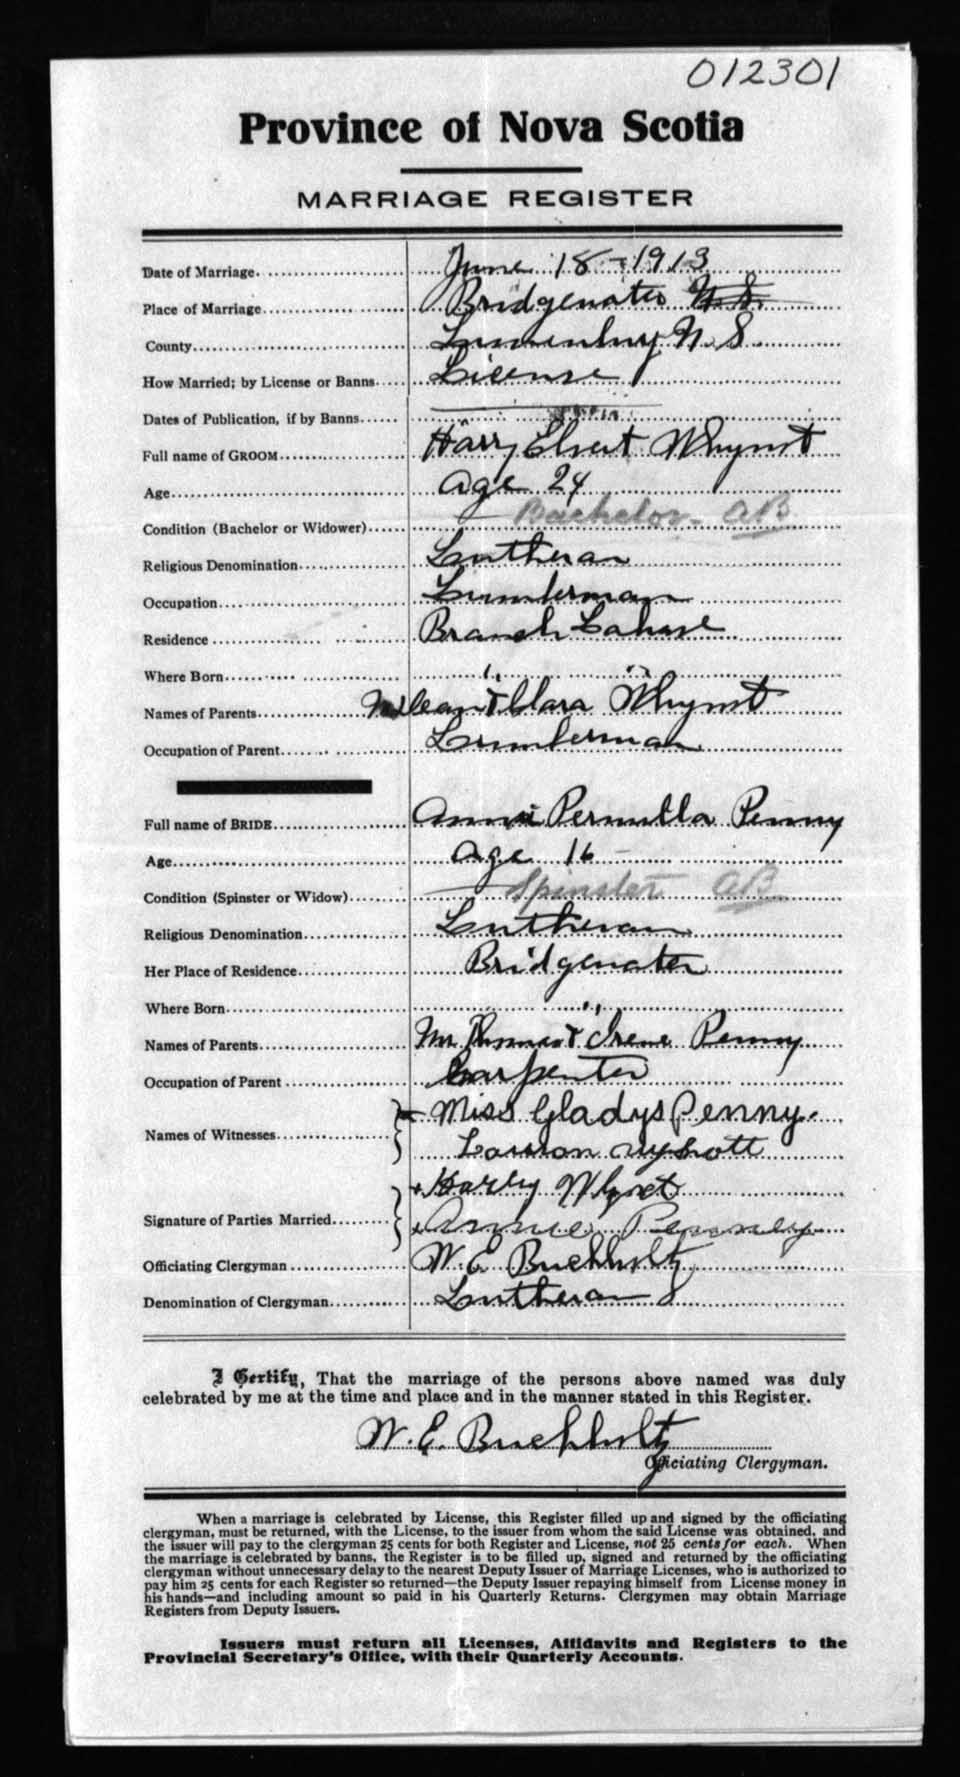 012301
Province of Nova Scotia
MARRIAGE REGISTER
Date of Marriage. June 18 - 1913
Place of Marriage Bridgewater N.S.
County Lunenburg N.S.
How Married; by License or Banns License
Dates of Publication, if by Banns
Full name of GROOM Harry Elvert Whynot
Age age 24
Condition (Bachelor or Widower) Bachelor - AB
Religious Denomination Lutheran
Occupation Lumberman
Residence Branch Lahave
Where Born " "
Names of Parents & Clara Whynot
Occupation of Parent Lumberman
Full name of BRIDE Penny
Age age 16 -
Condition (Spinster or Widow) Spinster AB
Religious Denomination Lutheran
Her Place of Residence Bridgewater
Where Born "
Names of Parents Mr Thomas & Irene Penny
Occupation of Parent Carpenter
Miss Gladys Penny.
Names of Witnesses
+ Harry
Signature of Parties Married
Annie Penney
Officiating Clergyman W. E. Buchholtz
Denomination of Clergyman Lutheran
I Certify, That the marriage of the persons above named was duly
celebrated by me at the time and place and in the manner stated in this Register.
W. E. Buchholtz
Officiating Clergyman.
When a marriage is celebrated by License, this Register filled up and signed by the officiating
clergyman, must be returned, with the License, to the issuer from whom the said License was obtained, and
the issuer will pay to the clergyman 25 cents for both Register and License, not 25 cents for each. When
the marriage is celebrated by banns, the Register is to be filled up, signed and returned by the officiating
clergyman without unnecessary delay to the nearest Deputy Issuer of Marriage Licenses, who is authorized to
pay him 25 cents for each Register so returned—the Deputy Issuer repaying himself from License money in
his hands—and including amount so paid in his Quarterly Returns. Clergymen may obtain Marriage
Registers from Deputy Issuers.
Issuers must return all Licenses, Affidavits and Registers to the
Provincial Secretary's Office, with their Quarterly Accounts.